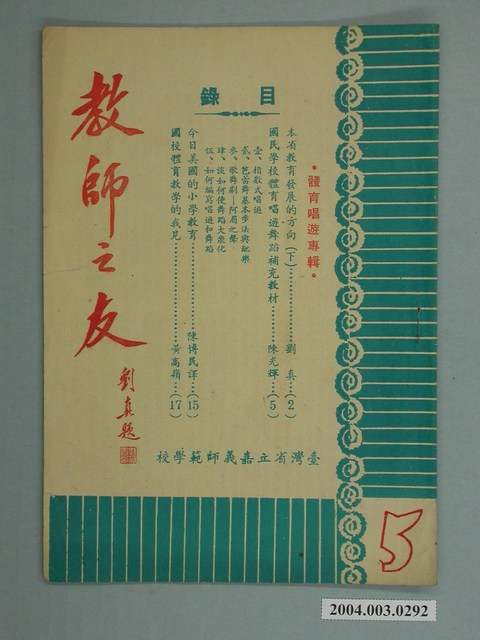 教師之友
劉真題
目錄
•體育唱遊專輯•
本省教育發展的方向(下)…………劉真…(2)
國民學校體育唱遊舞蹈補充教材…………陳光輝…(5)
壹、指教式唱遊
貳、芭蕾舞基本步法與配樂
參、歌舞劇—阿眉之聲
肆、談如何使舞蹈大眾化
伍、如何編寫唱遊和舞蹈
今日美國的小學教育…………陳博民譯…(15)
國校體育教學的我見…………黃高嶺…(17)
臺灣省立嘉義師範學校
5
2004.003.0292